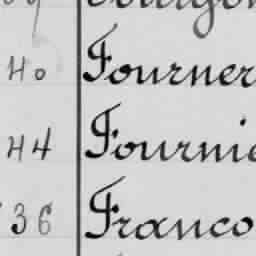 40 Fourner
44 Fournie
36 Franco